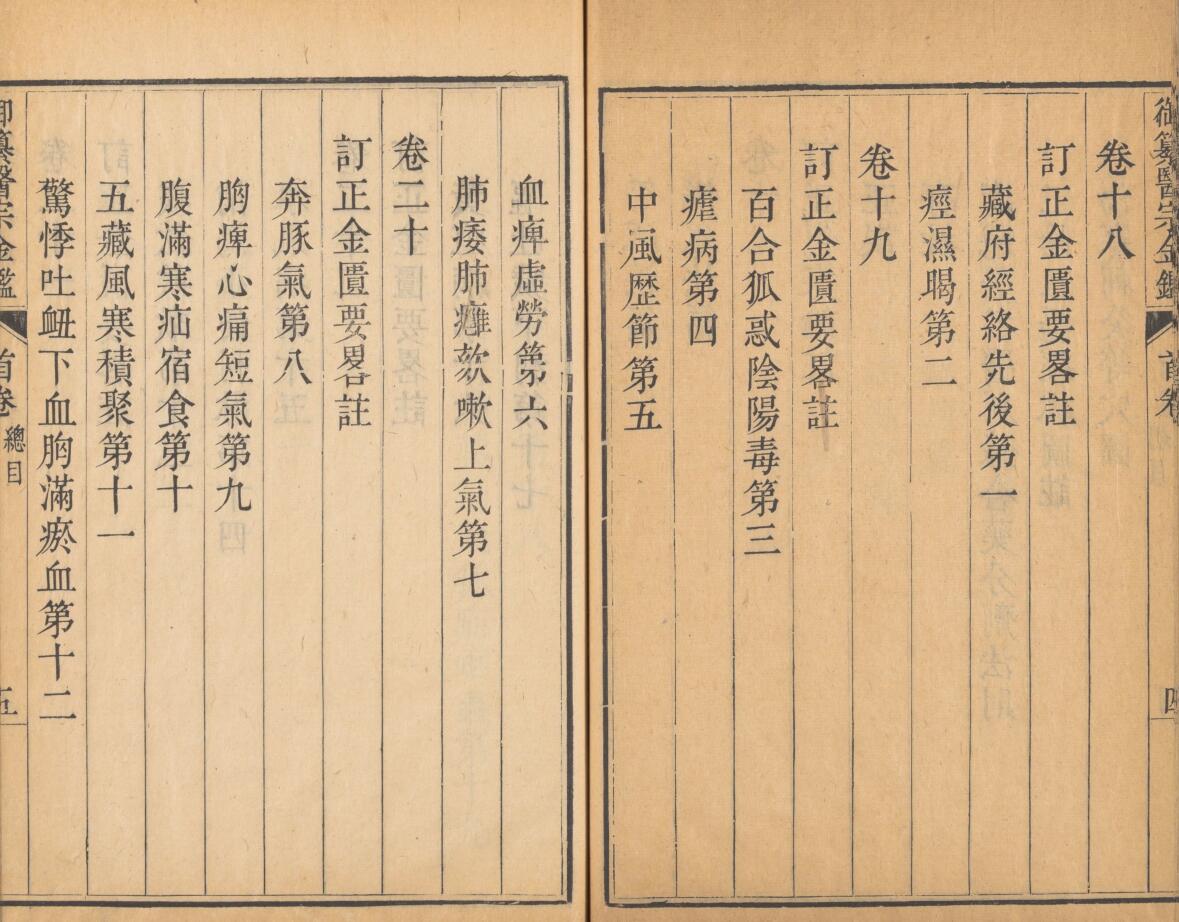 御纂醫宗金鑑
首卷
四
卷十八
訂正金匱要畧註
藏府經絡先後第一
痙濕暍第二
卷十九
訂正金匱要畧註
百合狐惑陰陽毒第三
瘧病第四
中風歴節第五
血痺虛勞第六
肺痿肺癰欬嗽上氣第七
卷二十
訂正金匱要畧註
奔豚氣第八
胸痺心痛短氣第九
腹滿寒疝宿食第十
五藏風寒積聚第十一
驚悸吐衄下血胸滿瘀血第十二
御纂醫宗金鑑
首卷
總目
五